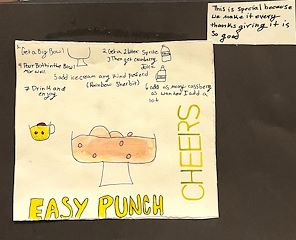 This is special because
we make it every
thanks giving it is
so good
1 Get a Big Bowl
2 Get a 2 liter Sprite
3 Then get cranberry
Juice
4 Pour Both in the Bowl
Mix well
5 add ice cream any kind
(Rainbow Sherbit)
6 add as many
as want I add a
lot
7 Drink and
enjoy
CHEERS
EASY PUNCH